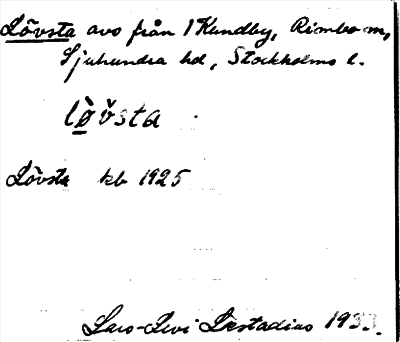 Lövsta avs från 1 Kundby, Rimbo sn,
Sjuhundra hd, Stockholms l.
lø̀v̌sta
Lövsta kb 1925
Lars-Levi Læstadius 193